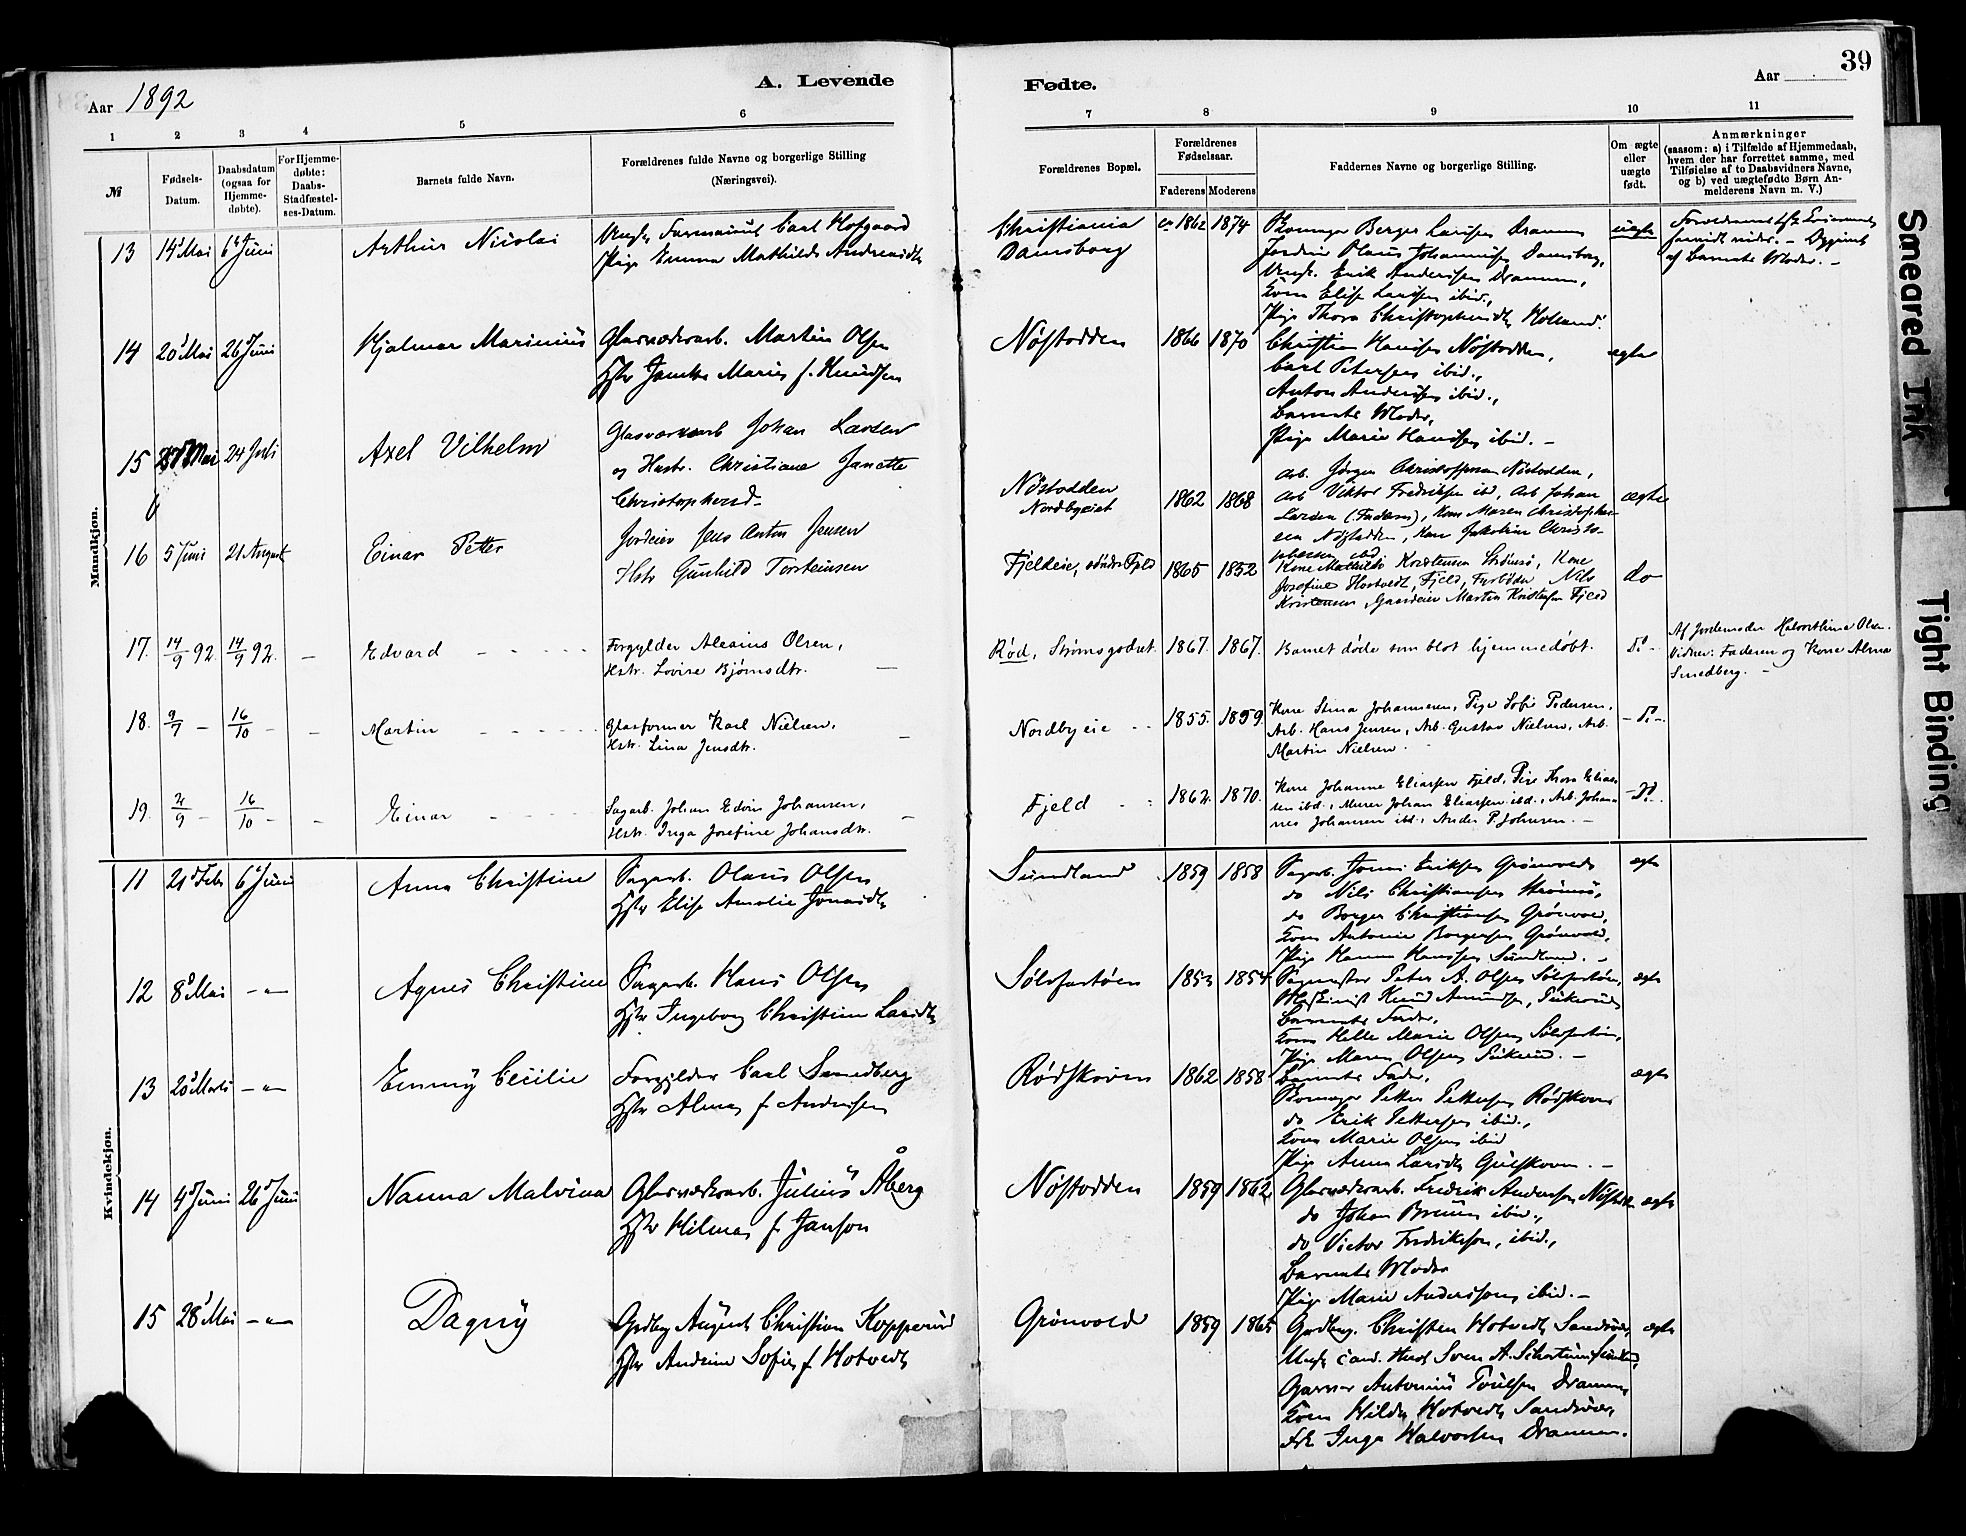 39
A. Levende
Fødte.
Aar 1892
Aar
1 2 3 4 5 6 7 8 9 10 11
№
Fødsels-
Datum.
Daabsdatum
(ogsaa for
Hjemme-
døbte).
For Hjemme-
døbte:
Daabs-
Stadfæstel-
ses-Datum.
Barnets fulde Navn.
Forældrenes fulde Navne og borgerlige Stilling
(Næringsvei).
Forældrenes Bopæl.
Forældrenes
Fødselsaar.
Faderens Moderens
Faddernes Navne og borgerlige Stilling.
Om ægte
eller
uægte
født.
Anmærkninger
(saasom: a) i Tilfælde af Hjemmedaab,
hvem der har forrettet samme, med
Tilføielse af to Daabsvidners Navne,
og b) ved uægtefødte Børn An-
melderens Navn m. V.)
Mandkjøn.
13 14 Mai 6 Juni Arthur Nicolai
Carl Hofgaard
Pige Emma Mathilde Andreasdt
Christiania
Damsborg
ca 1862 1874
Berger Larsen Dramm
Olaus Johannesen Damsborg,
Ungk. Erik Andersen Drammen,
Kone Elise Larsen ibid.,
Pige Thora Christophersdt Holland.
uægte
af Barnets Moder. –
14 20 Mai 26 Juni Hjalmar Marinius
Glasværksarb. Martin Olsen
Hstr Janette Marie f. Knudsen
Nøstodden 1866 1870
Christian Hansen Nøstodden,
Carl Petersen ibid.,
Anton Andersen ibid.,
Barnets Moder,
Pige Marie Hansen ibid. –
ægte
15 Mai 24 Juli Axel Vilhelm
Glasværksarb Johan Larsen
og Hustr. Christiane Janette
Christophersd.
Nøstodden
Nordbyeiet
1862 1868
Arb. Jørgen Christoffersen Nøstodden,
Arb Viktor Fredriksen ibd, Arb Johan
Larsen (Faderen), Kone Maren Christopher-
sen Nøstodden, Kone Jakobine Christo-
phersen ibd
ægte
16 5 Juni 21 August Einar Petter
Jordeier Jens Anton Jensen
Hstr Gunhild Torsteinsen
Fjeldeie, søndre Fjeld 1865 1852
Kone Mathilde Kristensen Strømsø, Kone
Josefine Hortvedt, Fjeld, Nils
Kristensen, Gaardeier Martin Kristensen Fjeld
do
17. 14/9 92. 14/9 92. – Edvard
Forgylder Alexius Olsen,
Hstr. Lovise Bjørnsdtr. –
Rød, Strømsgodset. 1867. 1867.
Barnet døde som blot hjemmedøbt.
D:o –
Af Jordemoder Halvordine Olsen.
Vidner: Faderen og Kone Alma
Smedberg. –
18. 9/7 – 16/10 – – Martin
Glasformer Karl Nielsen,
Hstr. Lina Jensdtr. –
Nordbyeie 1855. 1859.
Kone Stina Johannesen, Pige Sofie Pedersen,
Arb. Hans Jensen, Arb. Gustav Nielsen, Arb.
Martin Nielsen.
– D:o –
19. 2/9 – 16/10 – – Einar
Sagarb. Johan Edvin Johansen,
Hstr. Inga Josefine Johansdtr. –
Fjeld 1862. 1870.
Kone Johanne Eliassen Fjeld, Pige Thora Elias-
sen ibd., Murer Johan Eliassen ibd., Arb. Johan-
nes Johansen ibd., Anders P. Johnsen. –
– D:o –
Kvindekjøn.
11 21 Febr 6 Juni Anna Christine
Sagarb. Olaus Olsen
Hstr Elise Amalie Jonasdtr
Sundland 1859 1858
Sagarb. Eriksen Grønvold
do Nils Christiansen Strømsø,
do Borger Christiansen Grønvold,
Kone Antonie Borgersen Grønvold,
Pige Hanna Hansen Sundland. –
ægte
12 8 Mai –„– Agnes Christine
Sagarb. Hans Olsen
Hstr Ingeborg Christine Larsdtr
Sølvfastøen 1853 1854
Sagmester Peter A. Olsen Sølvfastøen,
Maskinist Knud Amundsen,
Barnets Fader,
Kone Helle Marie Olsen Sølvfastøen,
Pige Maren Olsen –
ægte
13 20 Marts –„– Emmy Cecilie
Forgylder Carl Smedberg
Hstr Alma f Andersen
Rødskoven 1862 1858
Barnets Fader,
Petter Pettersen Rødskoven
do Erik Pettersen ibid.,
Kone Marie Olsen ibid
Pige Anna Larsdtr Gulskoven. –
ægte
14 4 Juni 26 Juni Nanna Malvina
Glasværksarb. Julius Åberg
Hstr Hilma f Janson
Nøstodden 1859 1862
Glasværksarb. Fredrik Anderson Nøstodden
do Johan Bruun ibid.,
do Victor Fredrikson, ibid.,
Barnets Moder
Pige Marie Andersson ibid. –
ægte
15 28 Mai –„– Dagny
Grdbrg August Christian Kopperud
Hstr Andrine Sofie f Hotvedt
Grønvold 1859 1865
Grdbrg. Christen Hotvedt Sandsvær,
Ungk cand. Sven A. Schartum
Garver Antonius Poulsen Drammen,
Kone Hilda Hotvedt Sandsvær,
Frk Inga Halvorsen Drammen.
ægte
Smeared Ink
Tight Binding